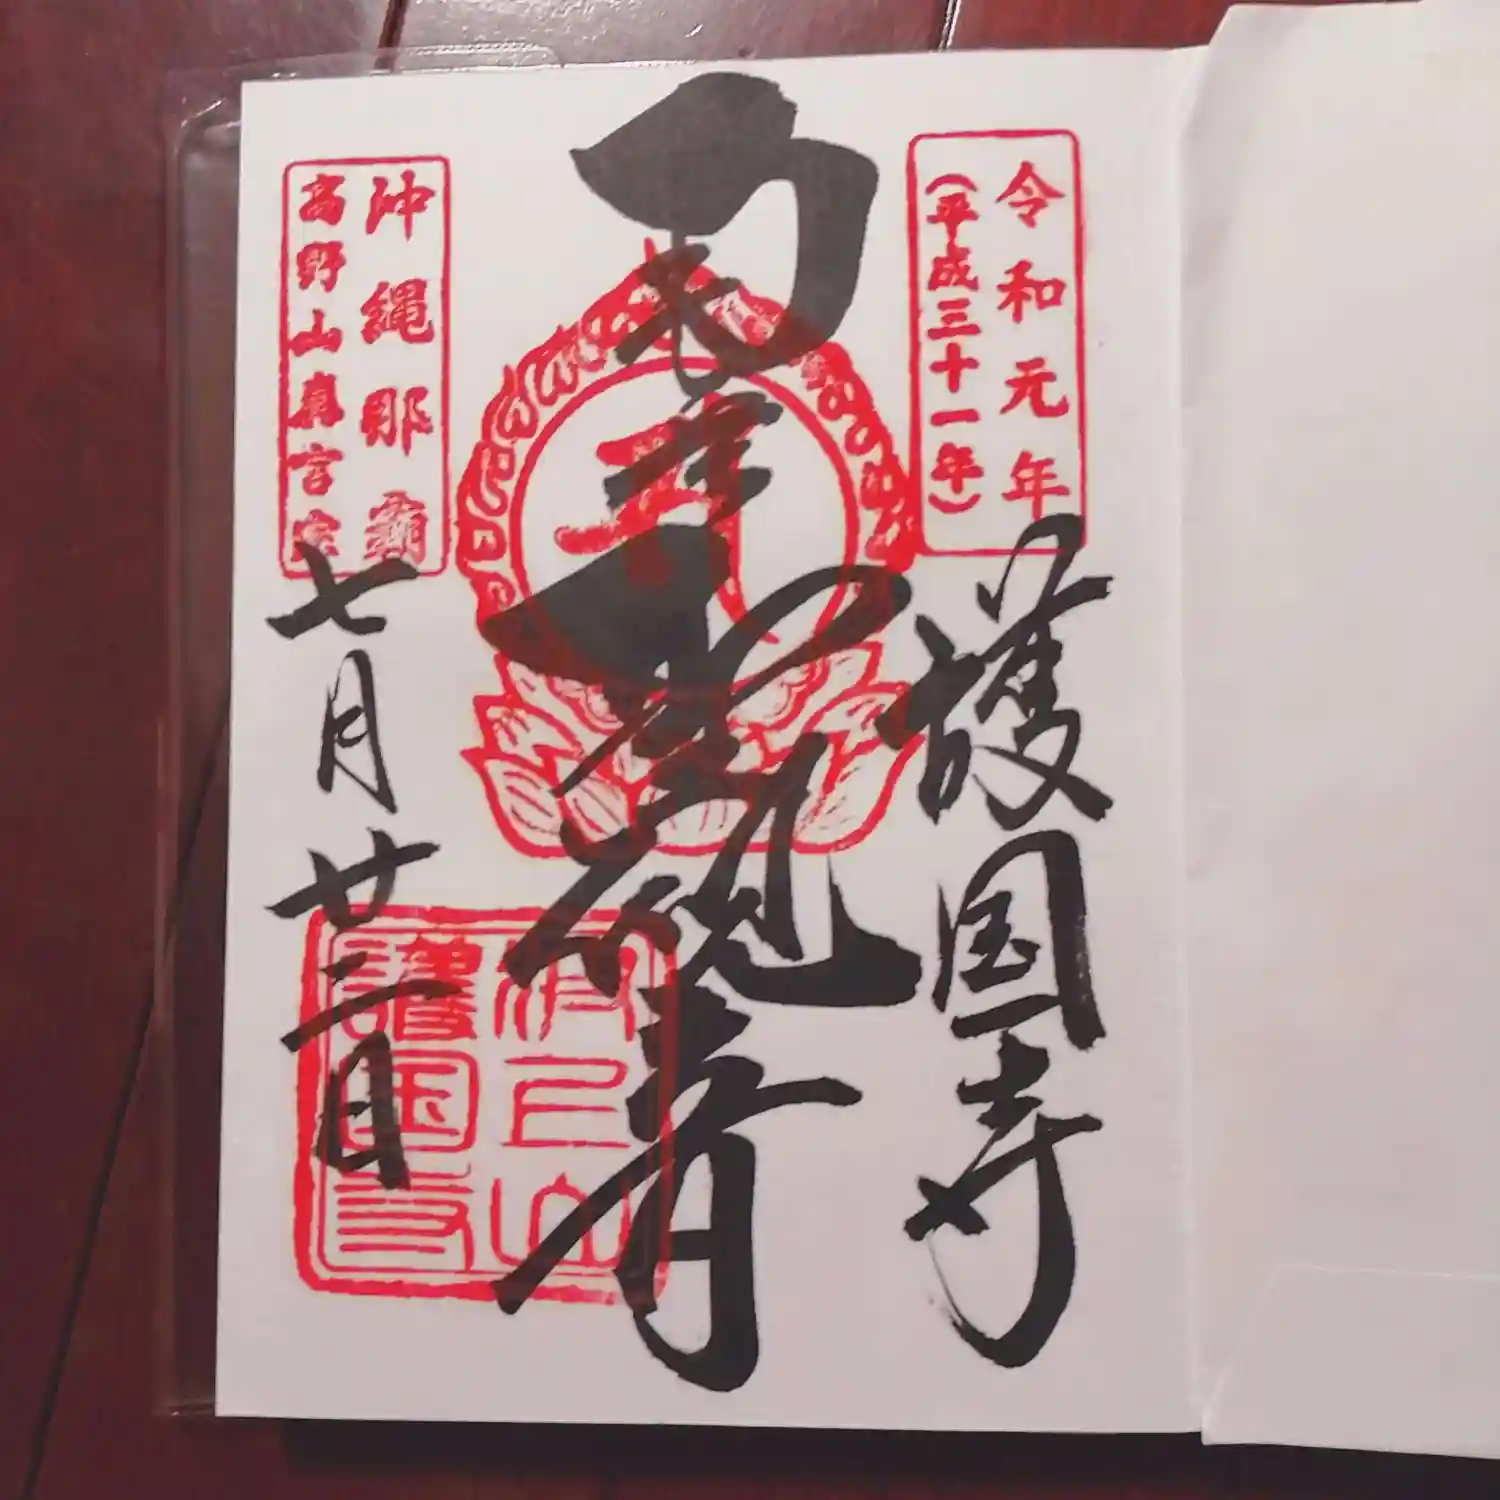 令和元年
(平成三十一年)
護国寺
観音
沖縄那覇
高野山真言宗
七月廿三日
波上山
護国寺